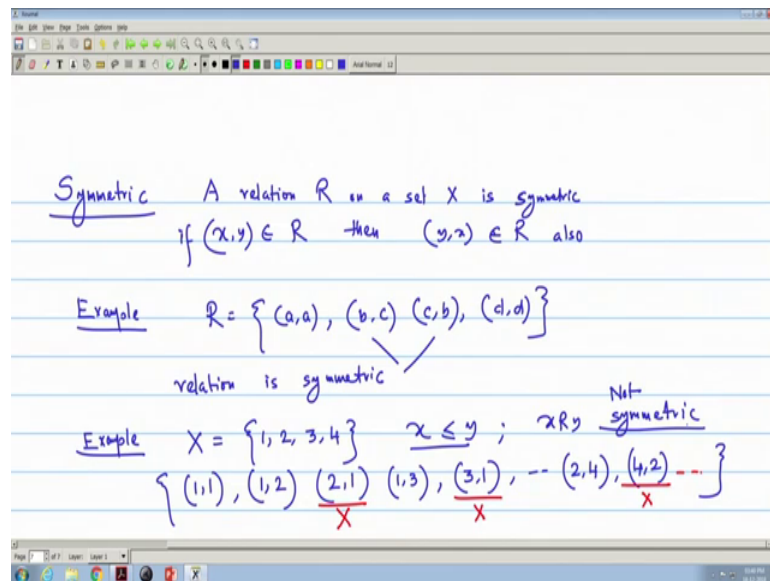 Journal
File Edit View Page Tools Options Help
Arial Normal 12
Symmetric A relation R on a set X is symmetric
if (x,y) ∈ R then (y,x) ∈ R also
Example R = { (a,a), (b,c) (c,b), (d,d) }
relation is symmetric
Not
Example X = {1, 2, 3, 4} x ≤ y ; xRy symmetric
{ (1,1), (1,2) (2,1) (1,3), (3,1), -- (2,4), (4,2) --- }
X X X
Page 7 of 7 Layer: Layer 1